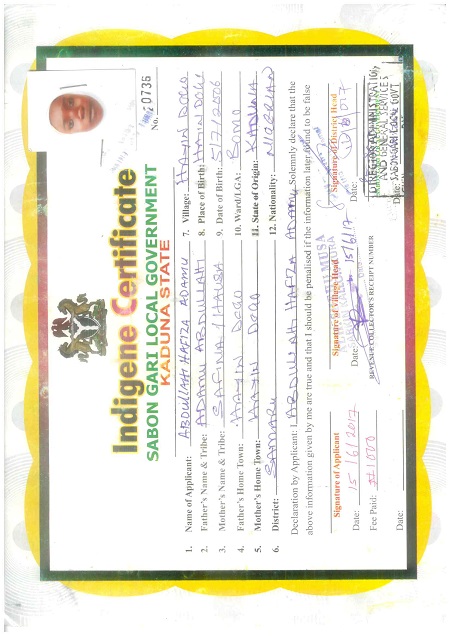 No. 0735
Indigene Certificate
SABON GARI LOCAL GOVERNMENT
KADUNA STATE
1. Name of Applicant: ABDULLAHI HAFIZA ADAMU
2. Father's Name & Tribe: ADAMU ABDULLAHI
3. Mother's Name & Tribe: SAFIYA / HAUSA
4. Father's Home Town: HAYIN DOGO
5. Mother's Home Town: HAYIN DOGO
6. District: SAMARU
7. Village: HAYIN DOGO
8. Place of Birth: HAYIN DOGO
9. Date of Birth: 5/7/2006
10. Ward/LGA: BOMO
11. State of Origin: KADUNA
12. Nationality: NIGERIAN
Declaration by Applicant: I ABDULLAHI HAFIZA ADAMU Solemnly declare that the
above information given by me are true and that I should be penalised if the information later found to be false
Signature of Applicant
Date: 15/6/2017
Fee Paid: #1000
Date:
Signature of Village Head
Date: 15/6/17
REVENUE COLLECTOR'S RECEIPT NUMBER
Signature of District Head
Date:
DIRECTOR ADMINISTRATION
AND GENERAL SERVICES
SABON GARI LOCAL GOVT
Date: